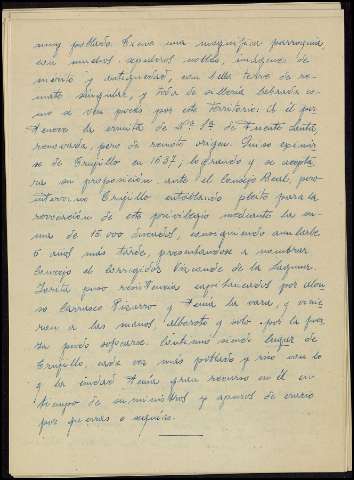 muy poblado. Tiene una magnífica parroquia
con muchos sepulcros nobles, imágenes de
mérito y antigüedad, con bella torre de re-
mate singular, y toda de sillería labrada co-
mo se ven pocas por este territorio. A él per-
tenece la ermita de Nª Sª de Fuente Santa,
renovada, pero de remoto origen. Quiso eximir-
se de Trujillo en 1637; logrando y se acepta-
ra su proposición ante el Consejo Real, pero
intervino Trujillo entablando pleito para la
revocación de este privilegio mediante la su-
ma de 15.000 ducados, consiguiendo anularle
5 años más tarde, presentandose a nombrar
Concejo el Corregidor Vizconde de la Laguna.
Zorita puso resistencia capitaneados por Alon-
so Carrasco Pizarro y tenía la vara, y vinie-
ron a las manos, alboroto y solo por la fuer-
za pudo sofocarse. Continuo siendo lugar de
Trujillo, cada vez más poblado y rico con lo
q. la ciudad tenía gran recurso en él en
tiempo de suministros y apuros de erario
por guerras o sequías.